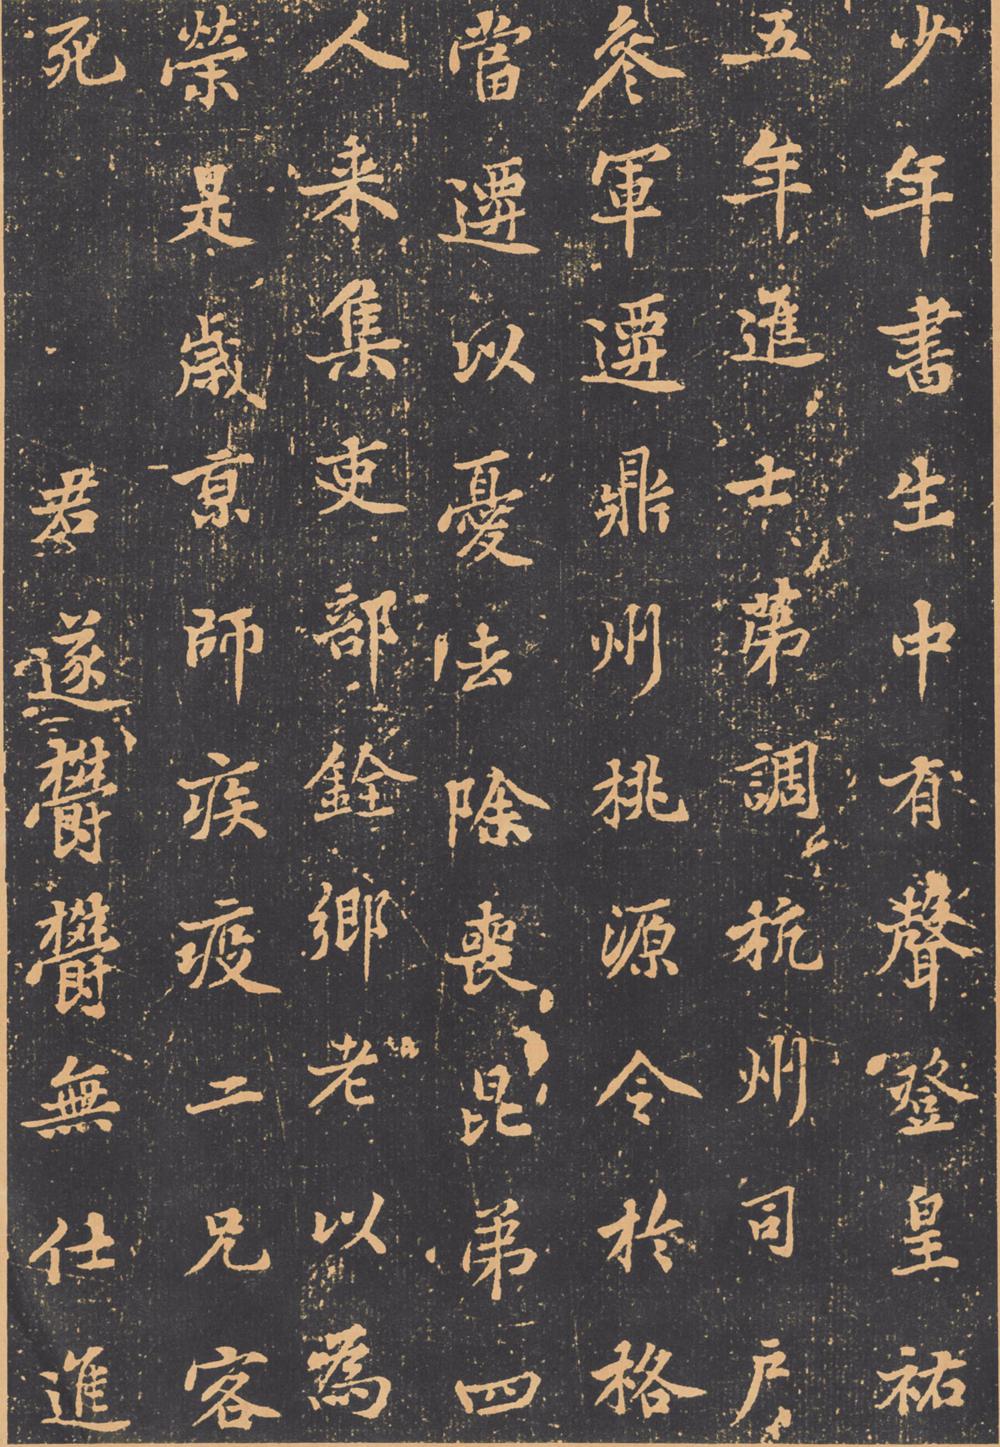 少年書生中有聲登皇祐
五年進士第調杭州司戶
參軍遷鼎州桃源令於格
當遷以憂去除喪昆弟四
人来集吏部銓鄉老以為
榮是歲京師疾疫二兄客
死君遂鬱鬱無仕進